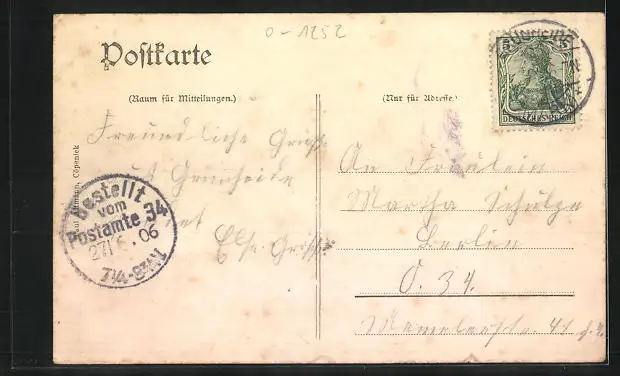 0-1252
Postkarte
(Raum für Mitteilungen.)
(Nur für Adresse.)
5 5
DEUTSCHES REICH
Freundliche Grüße
aus Grünheide
Else
An Fräulein
Martha Schulze
Berlin
O. 34.
Memelerstr. 41
Bestellt
vom
Postamte 34
27/6.06
7¼-8¾V.
Cöpenick